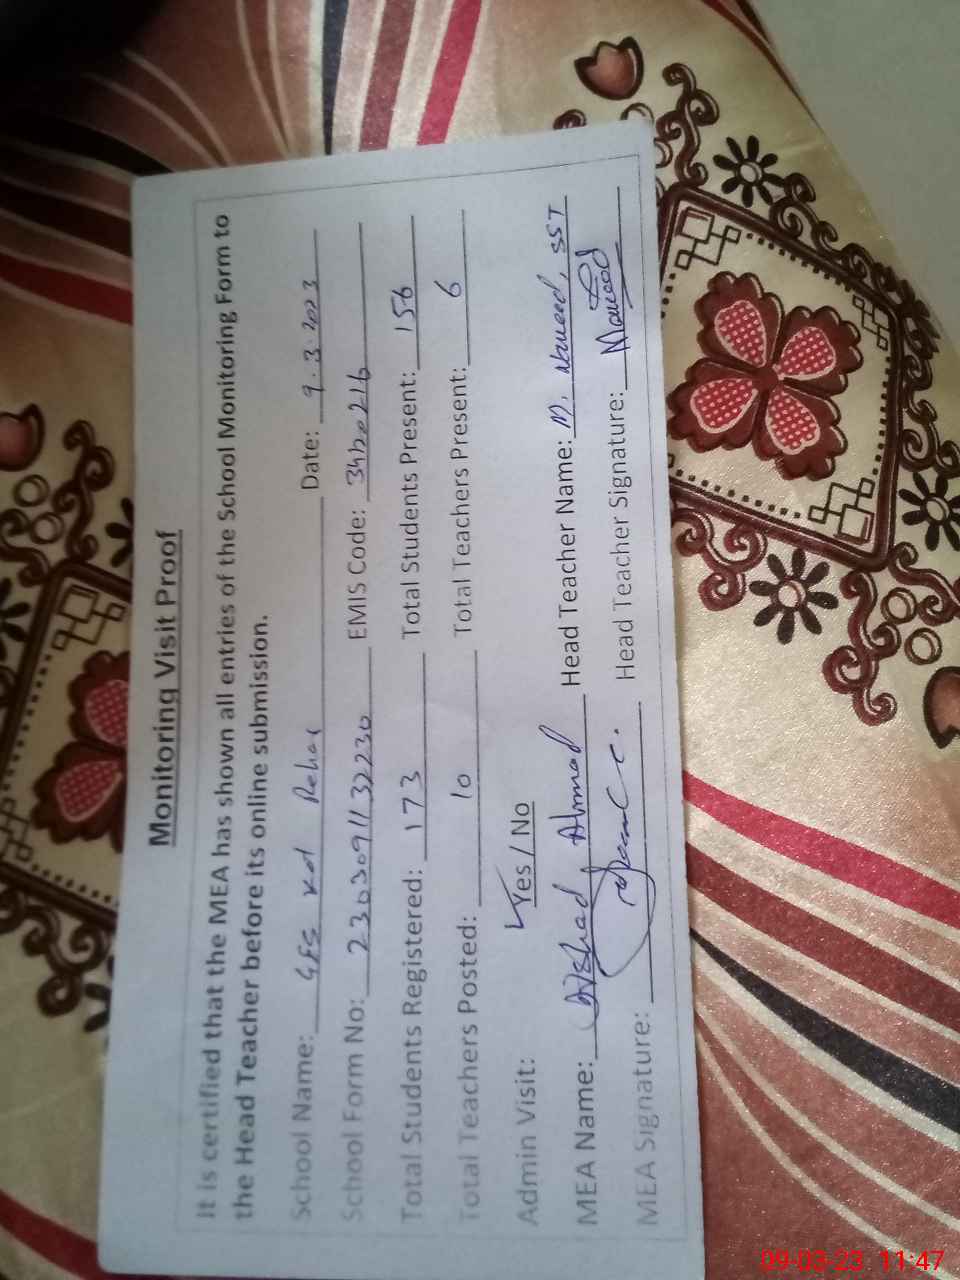 Monitoring Visit Proof
It is certified that the MEA has shown all entries of the School Monitoring Form to
the Head Teacher before its online submission.
School Name: GES Kot Date: 9.3.2023
School Form No: 2303091132230 EMIS Code: 34120216
Total Students Registered: 173 Total Students Present: 156
Total Teachers Posted: 10 Total Teachers Present: 6
Admin Visit: Yes / No
MEA Name: Dilshad Ahmad Head Teacher Name: M. Naveed, SST
MEA Signature: Head Teacher Signature: Naveed
09-03-23 11:47